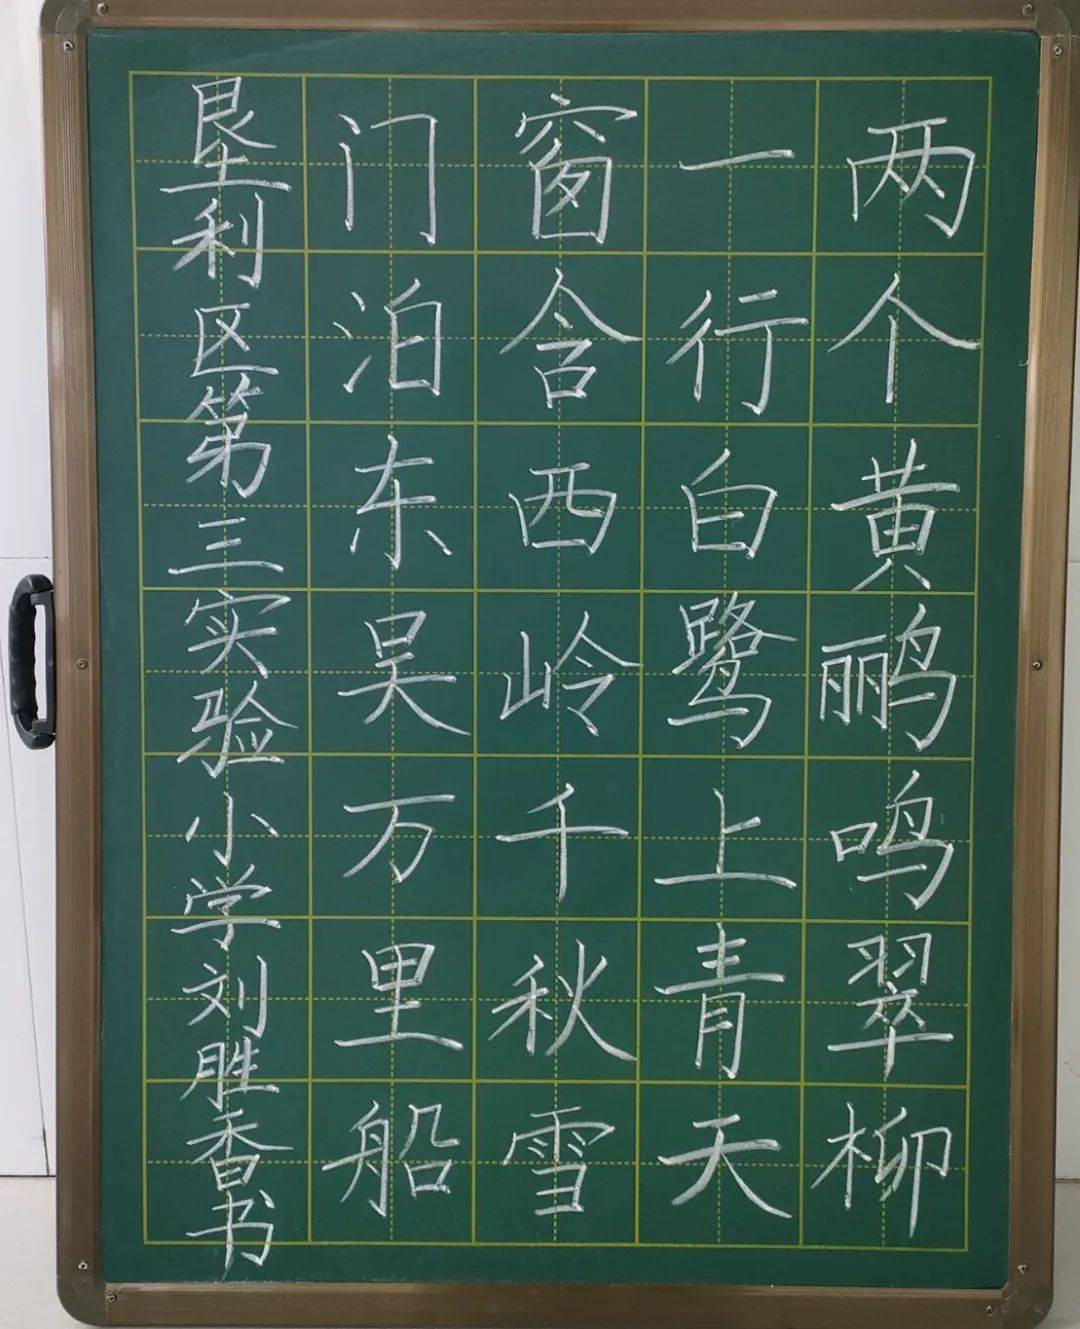 两个黄鹂鸣翠柳
一行白鹭上青天
窗含西岭千秋雪
门泊东吴万里船
垦利区第三实验小学刘胜香书